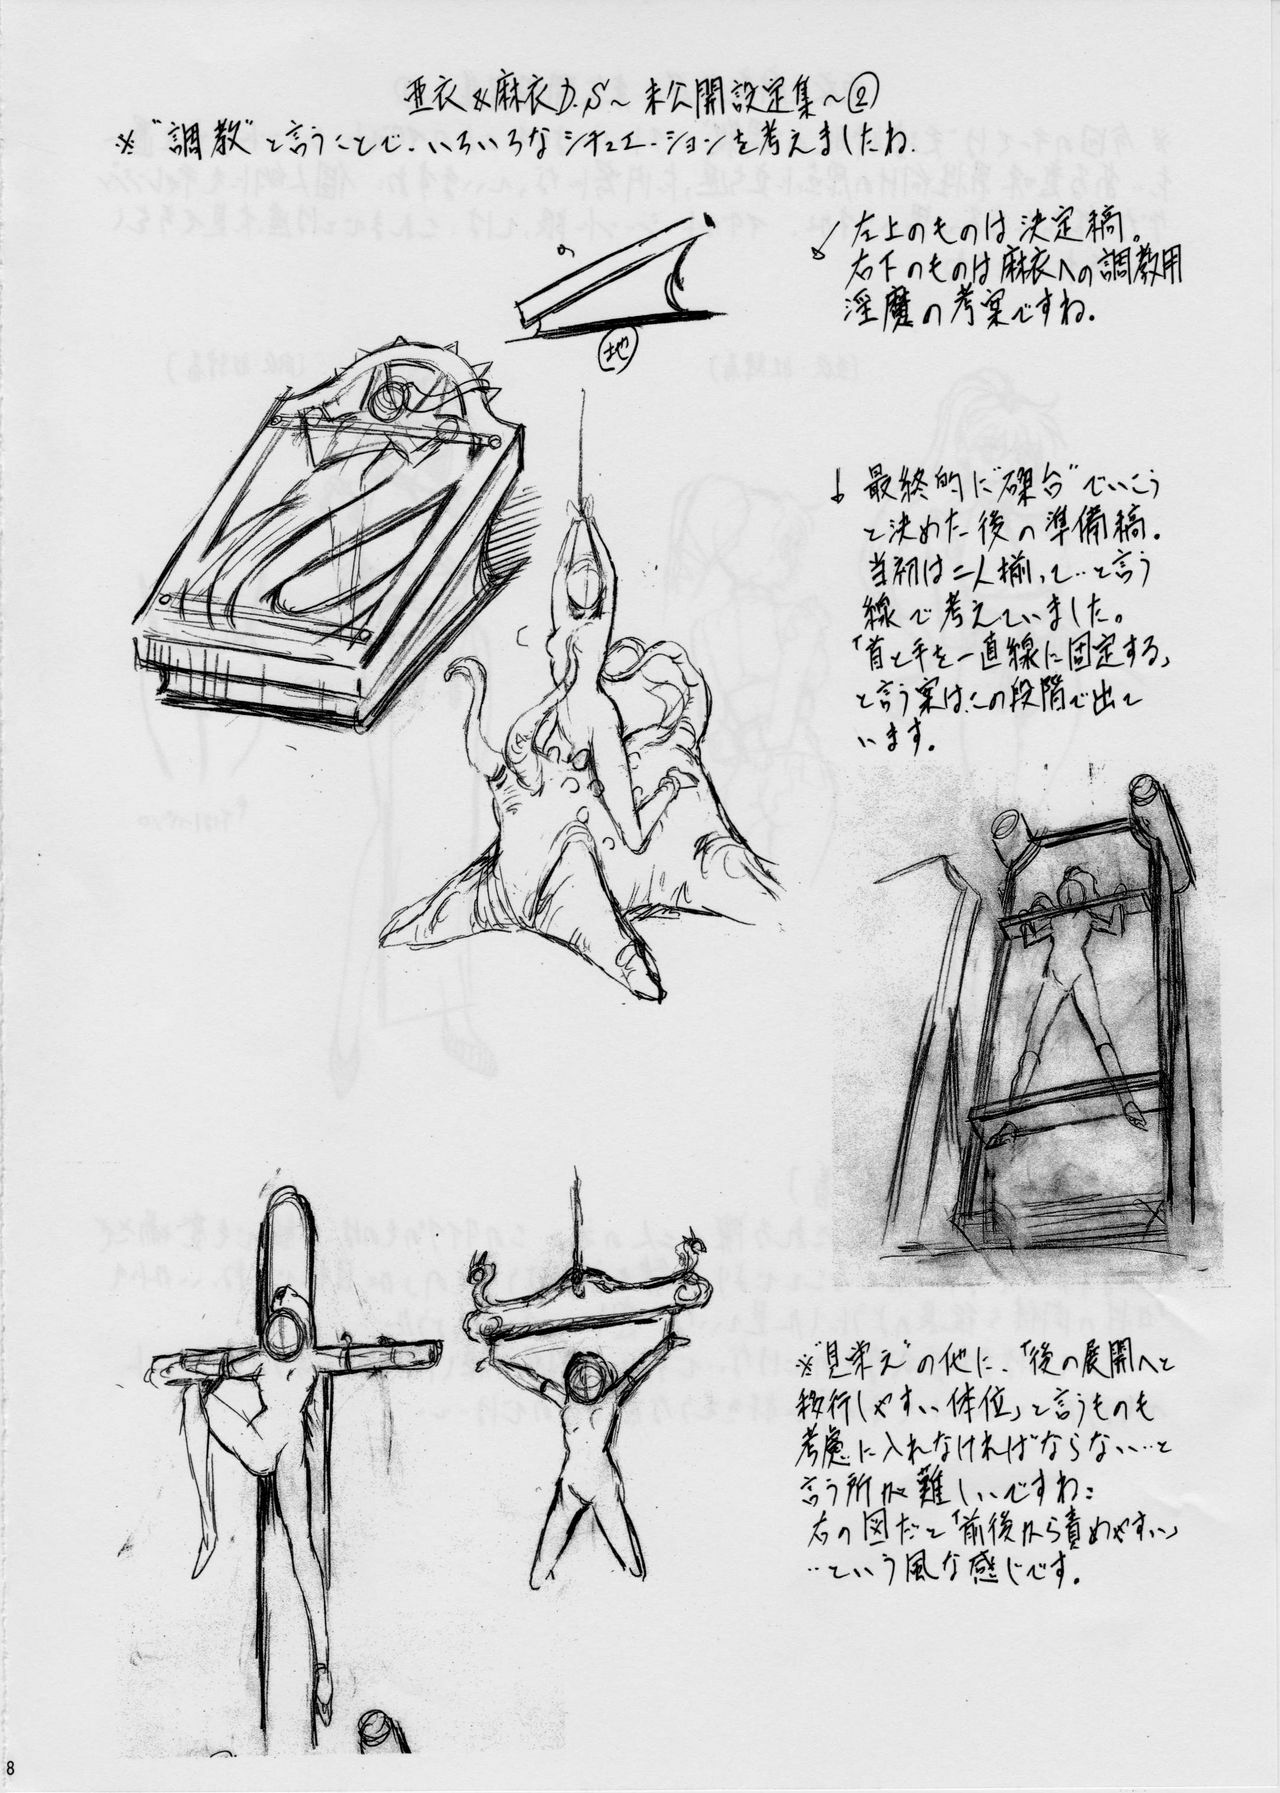 亜衣&麻衣D.S～未公開設定集～②
※"調教"と言うことで、いろいろなシチュエーションを考えましたね.
左上のものは決定稿。
右下のものは麻衣への調教用
淫魔の考案ですね.
地
↓ 最終的に"磔台"でいこう
と決めた後の準備稿。
当初は二人揃って…と言う
線で考えていました。
「首と手を一直線に固定する」
と言う案は、この段階で出て
います。
※"見栄え"の他に、「後の展開へと
移行しやすい体位」と言うものも
考慮に入れなければならない…と
言う所が難しいですね:
右の図だと「前後から責めやすい」
…という風な感じです.
8